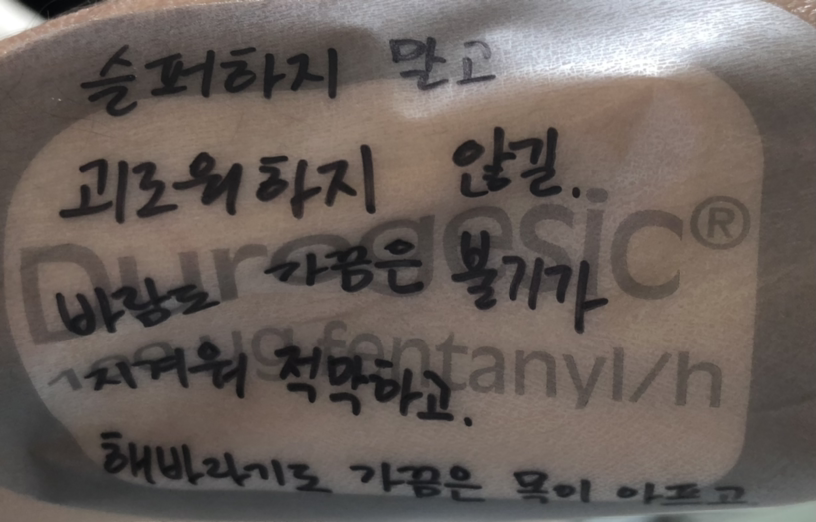 슬퍼하지 말고
괴로워하지 않길.
Durogesic®
바람도 가끔은 불기가
100 µg fentanyl/h
지겨워 적막하고.
해바라기도 가끔은 목이 아프고